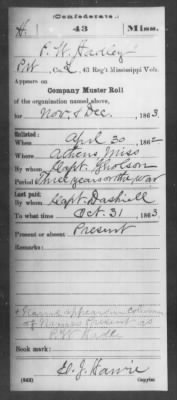 (Confederate.)
H. 43 Miss.
P. W. Hadley
Pvt, Co. L, 43 Reg't Mississippi Vols.
Appears on
Company Muster Roll
of the organization named above,
for Nov. & Dec., 1863.
Enlisted:
When April 30, 1862
Where Athens Miss
By whom Capt. Gholson
Period Three years or the war
Last paid:
By whom Capt. Dashiell
To what time Oct. 31, 1863
Present or absent Present
Remarks:
+ Name appears in column
of Names Present as
P. W.
Book mark:
(642) Copyist.